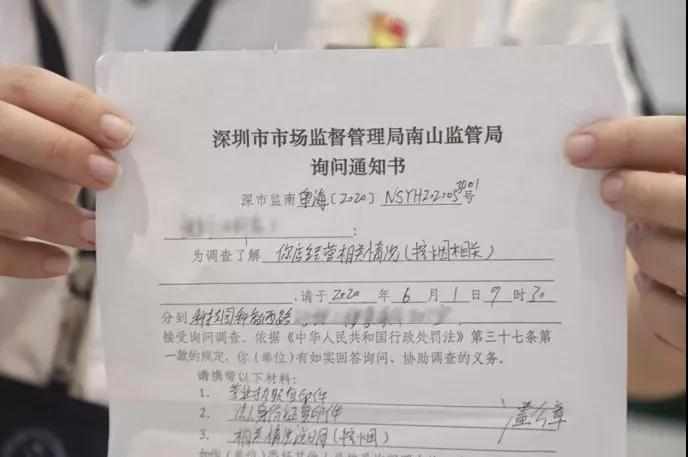 深圳市市场监督管理局南山监管局
询问通知书
深市监南望海〔2020〕NSYH2020053001号
:
为调查了解 你店经营相关情况(控烟相关)
,请于 2020 年 6 月 1 日 9 时 30
分到 科技园科智西路
接受询问调查。依据《中华人民共和国行政处罚法》第三十七条第
一款的规定,你(单位)有如实回答询问、协助调查的义务。
请携带以下材料:
1. 营业执照复印件
2. 法人身份证复印件 盖公章
3. 相关情况说明(控烟)